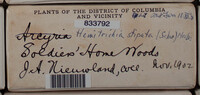 PLANTS OF THE DISTRICT OF COLUMBIA
AND VICINITY
833792
Arcyria Hemitrichia stipata (Schw)
Soldiers' Home Woods
J.A. Nieuwland, coll. Nov. 1902